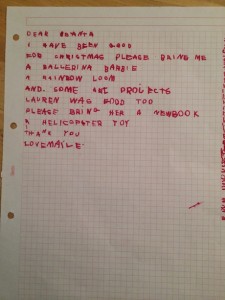 DEAR SANTA
I HAVE BEEN GOOD
FOR CHRISTMAS PLEASE BRING ME
A BALLERINA BARBIE
A RAINBOW LOOM
AND SOME ART PROJECTS
LAUREN WAS GOOD TOO
PLEASE BRING HER A NEWBOOK
A HELICOPSTER TOY
THANK YOU
LOVEMAILE